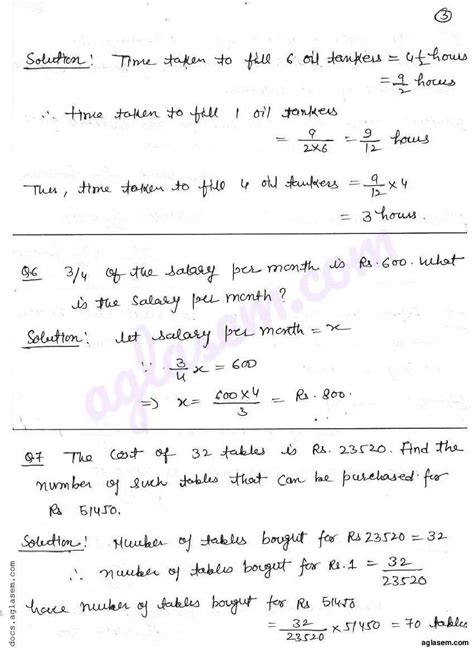 3
Solution: Time taken to fill 6 oil tankers = 4½ hours
= 9/2 hours
∴ time taken to fill 1 oil tankers
= 9/2×6 = 9/12 hours
Thus, time taken to fill 4 oil tankers = 9/12 × 4
= 3 hours.
Q6 3/4 of the salary per month is Rs. 600. What
is the salary per month?
Solution: let salary per month = x
∵ 3/4 x = 600
⇒ x = 600×4/3 = Rs. 800.
Q7 The cost of 32 tables is Rs. 23520. Find the
number of such tables that can be purchased for
Rs 51450.
Solution: Number of tables bought for Rs 23520 = 32
∴ number of tables bought for Rs. 1 = 32/23520
hence number of tables bought for Rs 51450
= 32/23520 × 51450 = 70 tables
aglasem.com
docs.aglasem.com
aglasem.com